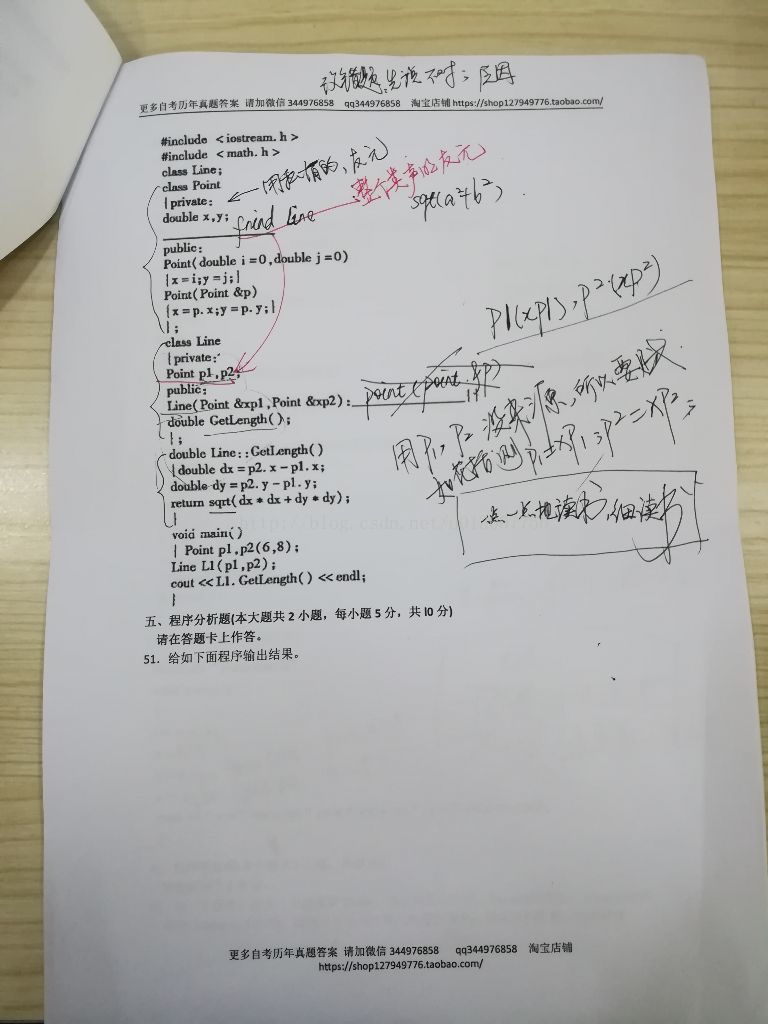 更多自考历年真题答案 请加微信 344976858 qq344976858 淘宝店铺 https://shop127949776.taobao.com/
#include <iostream.h>
#include <math.h>
class Line;
class Point
{private:
用私有的,友元
整个类声明友元
double x,y;
friend Line
sqrt(a²+b²)
public:
Point(double i=0,double j=0)
{x=i;y=j;}
Point(Point &p)
{x=p.x;y=p.y;}
};
p1(xp1),p2(xp2)
class Line
{private:
Point p1,p2;
public:
Line(Point &xp1,Point &xp2):
point(point &p)
double GetLength();
};
用p1,p2没有来源,所以要赋
p1=xp1;p2=xp2;
double Line::GetLength()
{double dx=p2.x-p1.x;
double dy=p2.y-p1.y;
return sqrt(dx*dx+dy*dy);
}
一点一点地读书,细读书
void main()
{ Point p1,p2(6,8);
Line L1(p1,p2);
cout<<L1.GetLength()<<endl;
}
五、程序分析题(本大题共 2 小题，每小题 5 分，共 l0 分)
请在答题卡上作答。
51．给如下面程序输出结果。
更多自考历年真题答案 请加微信 344976858 qq344976858 淘宝店铺
https://shop127949776.taobao.com/